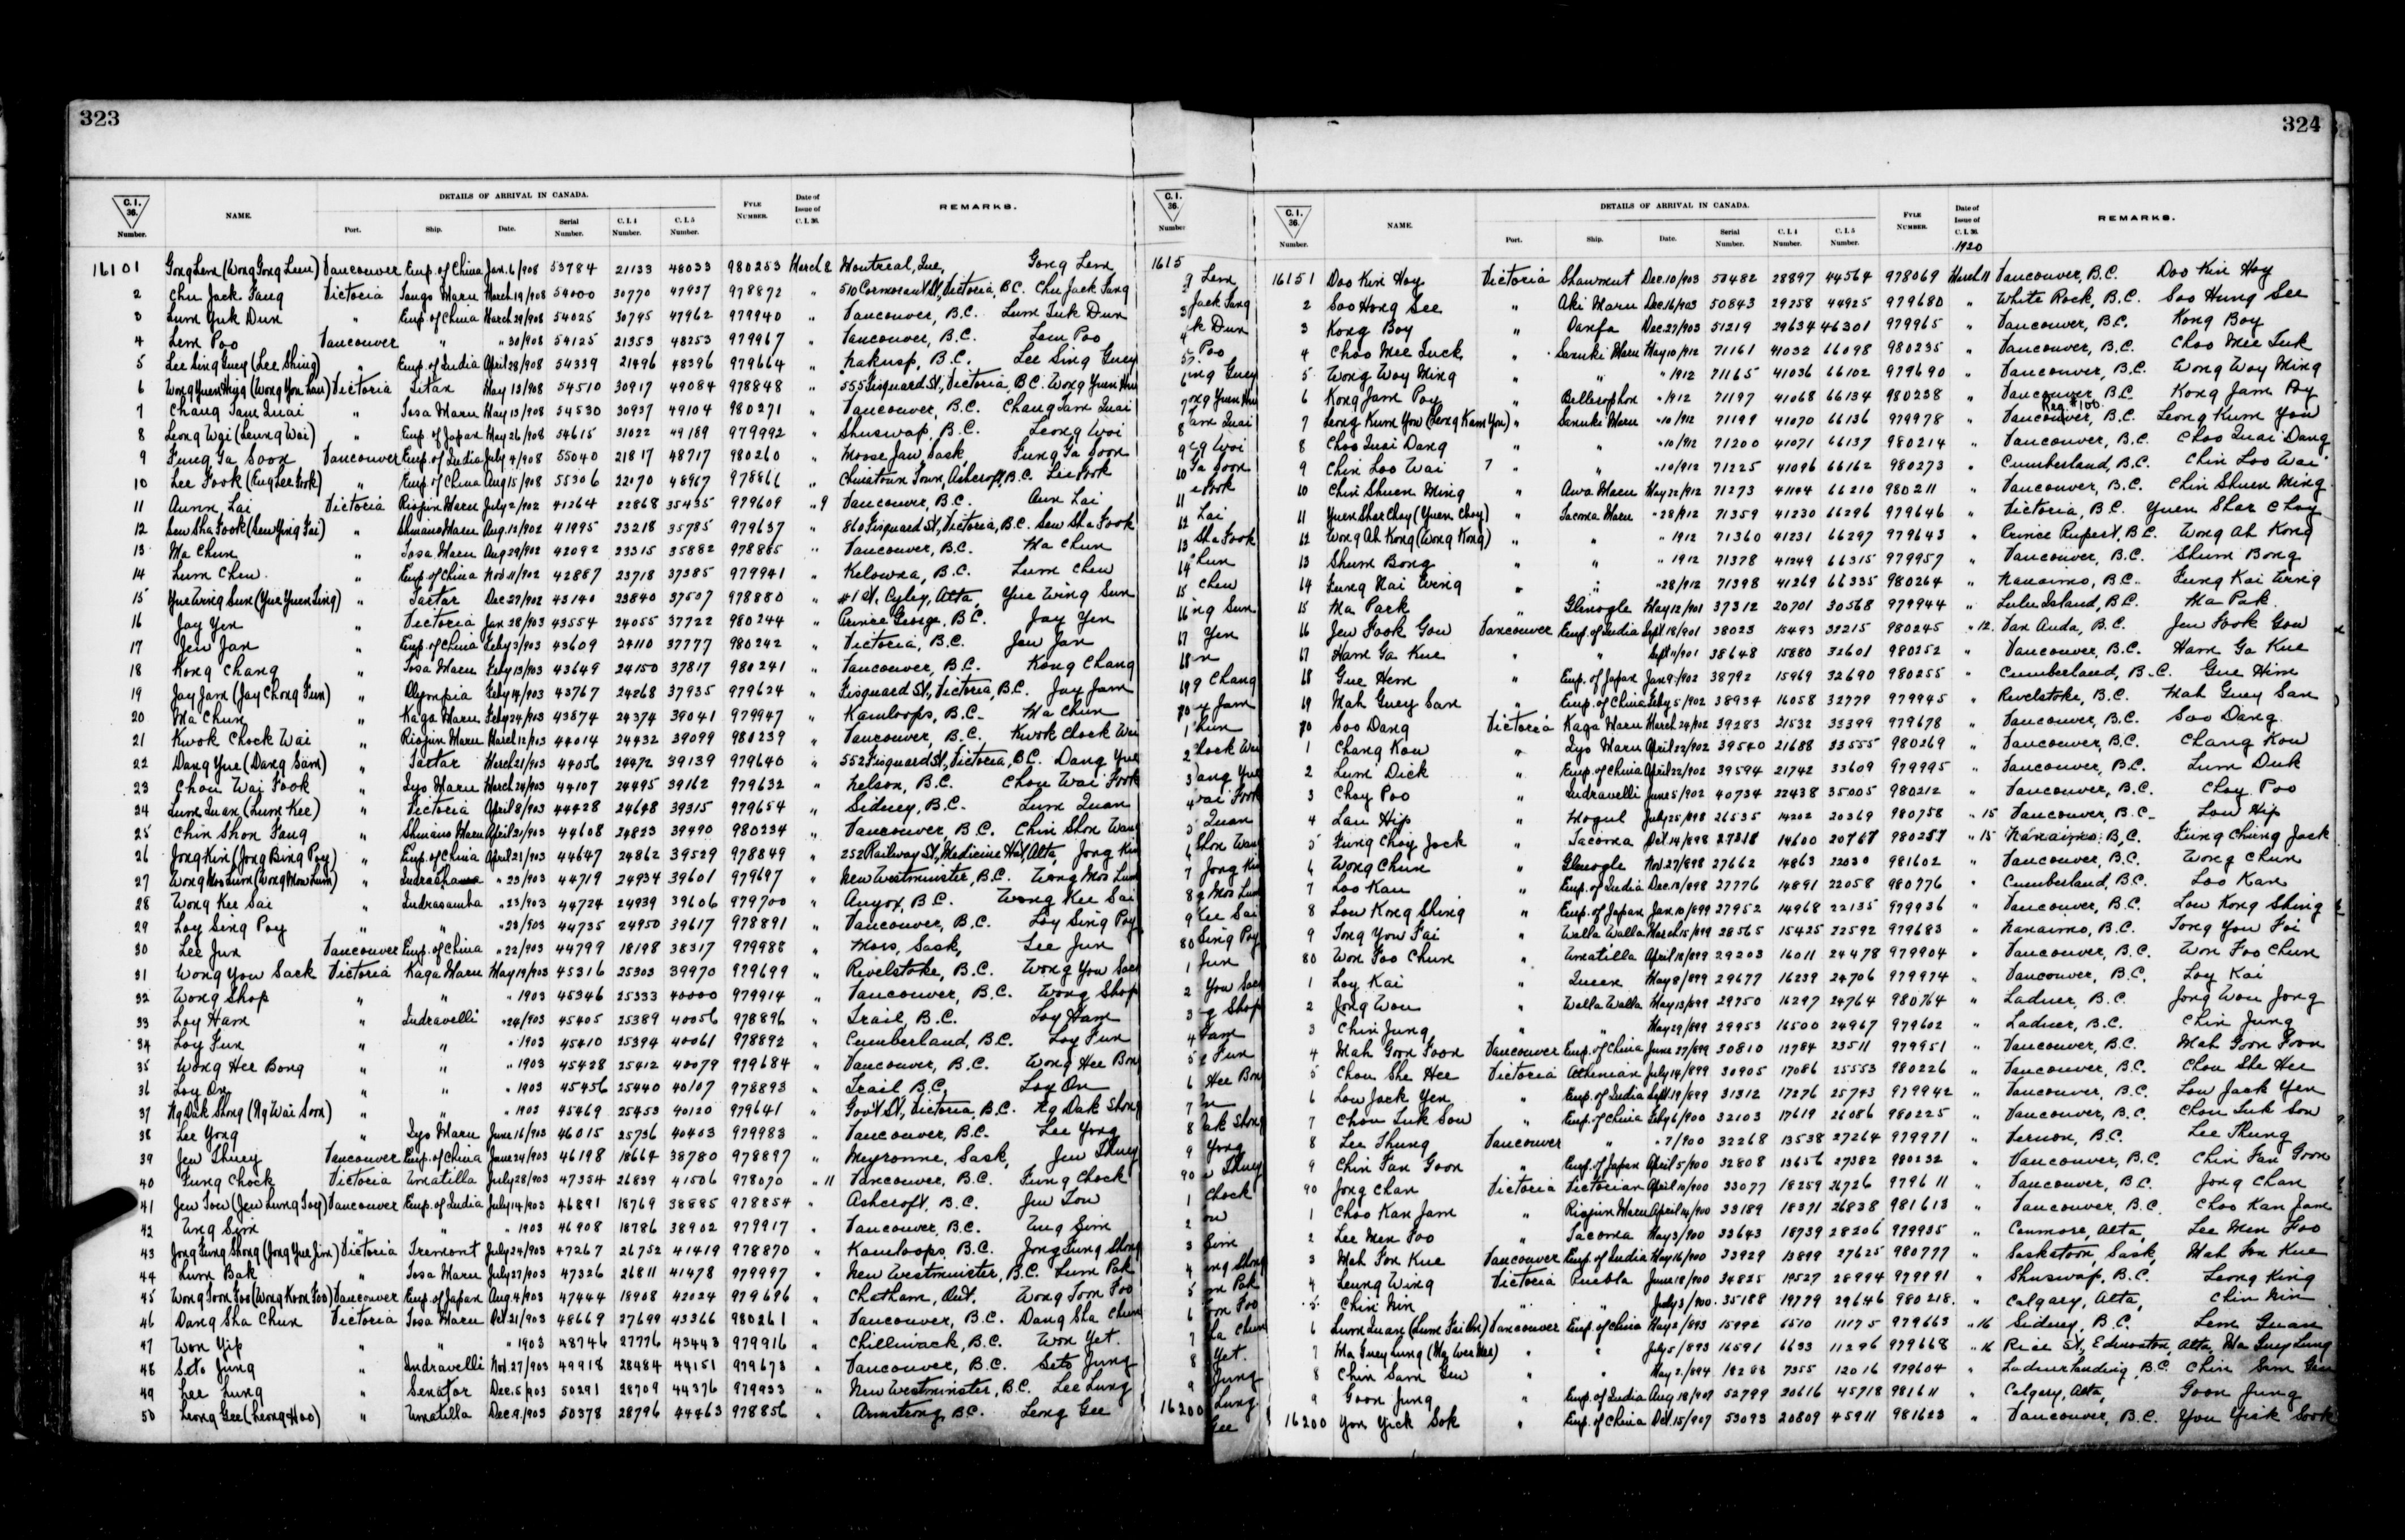 323
DETAILS OF ARRIVAL IN CANADA.
C. I. 36. Number. NAME. Port. Ship. Date. Serial Number. C. I. 4 Number. C. I. 5 Number. FYLE NUMBER. Date of Issue of C. I. 36. REMARKS.
16101 Gong Lem (Wong Gong Lem) Vancouver Emp. of China Jan. 6/908 53784 21133 48033 980253 March 8 Montreal, Que, Gong Lem
2 Chu Jack Fang Victoria Tango Maru March 19/908 54000 30770 47937 978872 " 510 Cormorant St, Victoria, B.C. Chu Jack Fang
3 Lum Yuk Dun " Emp. of China March 29/908 54025 30795 47962 979940 " Vancouver, B.C. Lum Luk Dun
4 Lem Poo Vancouver " " 30/908 54125 21353 48253 979967 " Vancouver, B.C. Lem Poo
5 Lee Sing Guey (Lee Shing) " Emp. of India April 28/908 54339 21496 48396 979664 " Nakusp, B.C. Lee Sing Guey
6 Wong Yuen Hing (Wong Yon Lau) Victoria Titan May 13/908 54510 30917 49084 978848 " 555 Fisguard St, Victoria, B.C. Wong Yuen
7 Chang Tam Quai " Tosa Maru May 13/908 54530 30937 49104 980271 " Vancouver, B.C. Chang Tam Quai
8 Leong Wai (Leung Wai) " Emp. of Japan May 26/908 54615 31022 49189 979992 " Shuswap, B.C. Leong Woi
9 Fung Ga Soon Vancouver Emp. of India July 4/908 55040 21817 48717 980260 " Moose Jaw, Sask, Fung Ga Soon
10 Lee Fook (Eng Lee Fook) " Emp. of China Aug 15/908 55306 22070 48967 978866 " Chinatown Town, Ashcroft, B.C. Lee Fook
11 Aunn, Lai Victoria Riojun Maru July 2/902 41264 22868 35435 979609 " 9 Vancouver, B.C. Aun Lai
12 Sew Sha Fook (Sew Ying Fai) " Shinano Maru Aug. 12/902 41995 23218 35785 979637 " 860 Fisguard St, Victoria, B.C. Sew Sha Fook
13 Ma Chun " Tosa Maru Aug 29/902 42092 23315 35882 978885 " Vancouver, B.C. Ma Chun
14 Lum Chew " Emp. of China Nov 11/902 42887 23718 37385 979941 " Kelowna, B.C. Lum Chew
15 Yue Wing Sun (Yue Yuen Ling) " Tartar Dec 27/902 43140 23840 37507 978880 " #1 St, Cyley, Alta, Yue Wing Sun
16 Jay Yen " Victoria Jan 28/903 43554 24055 37722 980244 " Prince George, B.C. Jay Yen
17 Jew Jan " Emp. of China Feby 3/903 43609 24110 37777 980242 " Victoria, B.C. Jew Jan
18 Kong Chang " Tosa Maru Feby 13/903 43649 24150 37817 980241 " Vancouver, B.C. Kong Chang
19 Jay Jam (Jay Chong Fun) " Olympia Feby 14/903 43767 24268 37935 979624 " Fisguard St, Victoria, B.C. Jay Jam
20 Ma Chun " Kaga Maru Feby 24/903 43874 24374 39041 979947 " Kamloops, B.C. Ma Chun
21 Kwok Chock Wai " Riojun Maru March 12/903 44014 24432 39099 980239 " Vancouver, B.C. Kwok Chock Wai
22 Dang Yue (Dang Sam) " Tartar March 21/903 44056 24472 39139 979640 " 552 Fisguard St, Victoria, B.C. Dang Yue
23 Chou Wai Fook " Iyo Maru March 24/903 44107 24495 39162 979632 " Nelson, B.C. Chou Wai Fook
24 Lum Quan (Lum Kee) " Victoria April 8/903 44428 24648 39315 979654 " Sidney, B.C. Lum Quan
25 Chin Shon Fang " Shinano Maru April 21/903 44608 24823 39490 980234 " Vancouver, B.C. Chin Shon Wang
26 Jong Kin (Jong Bing Poy) " Emp. of China April 21/903 44647 24862 39529 978849 " 252 Railway St, Medicine Hat, Alta, Jong Kin
27 Wong Mos Lum (Wong Mow Lum) " " 23/903 44719 24934 39601 979697 " New Westminster, B.C. Wong Mos Lum
28 Wong Kee Sai " Indrasamha " 23/903 44724 24939 39606 979700 " Anyox, B.C. Wong Kee Sai
29 Loy Sing Poy " " " 23/903 44735 24950 39617 978891 " Vancouver, B.C. Loy Sing Poy
30 Lee Jun Vancouver Emp. of China " 22/903 44799 18198 38317 979988 " Mors, Sask, Lee Jun
31 Wong You Sack Victoria Kaga Maru May 19/903 45316 25303 39970 979699 " Revelstoke, B.C. Wong You Sack
32 Wong Shop " " " 1903 45346 25333 40000 979914 " Vancouver, B.C. Wong Shop
33 Loy Ham " Indravelli " 24/903 45405 25389 40056 978896 " Trail, B.C. Loy Ham
34 Loy Fun " " " 1903 45410 25394 40061 978892 " Cumberland, B.C. Loy Fun
35 Wong Hee Bong " " " 1903 45428 25412 40079 979684 " Vancouver, B.C. Wong Hee Bong
36 Loy On " " " 1903 45456 25440 40107 978893 " Trail, B.C. Loy On
37 Ng Dak Shong (Ng Wai Soon) " " " 1903 45469 25453 40120 979641 " Gov't St, Victoria, B.C. Ng Dak Shong
38 Lee Yong " Iyo Maru June 16/903 46015 25736 40403 979983 " Vancouver, B.C. Lee Yong
39 Jew Thuey Vancouver Emp. of China June 24/903 46198 18664 38780 978897 " Meyronne, Sask, Jew Thuey
40 Fung Chock Victoria Umatilla July 28/903 47354 26839 41506 978070 " 11 Vancouver, B.C. Fung Chock
41 Jew Tow (Jew Lung Toy) Vancouver Emp. of India July 14/903 46891 18769 38885 978854 " Ashcroft, B.C. Jew Tow
42 Ung Sim " " " 1903 46908 18786 38902 979917 " Vancouver, B.C. Ung Sim
43 Jong Fung Shong (Jong Yue Jim) Victoria Tremont July 24/903 47267 26752 41419 978870 " Kamloops, B.C. Jong Fung Shong
44 Lum Bak " Tosa Maru July 27/903 47326 26811 41478 979997 " New Westminster, B.C. Lum Pak
45 Wong Toon Foo (Wong Koon Foo) Vancouver Emp. of Japan Aug. 4/903 47444 18908 42024 979696 " Chatham, Ont. Wong Toon Foo
46 Dang Sha Chun Victoria Tosa Maru Oct. 21/903 48669 27699 43366 980261 " Vancouver, B.C. Dang Sha Chun
47 Won Yip " " " 1903 48746 27776 43443 979916 " Chilliwack, B.C. Won Yet.
48 Seto Jung " Indravelli Nov. 27/903 49918 28484 44151 979673 " Vancouver, B.C. Seto Jung
49 Lee Lung " Senator Dec. 5/903 50291 28709 44376 979933 " New Westminster, B.C. Lee Lung
50 Leong Gee (Leong Hoo) " Umatilla Dec 9/903 50378 28796 44463 978856 " Armstrong, B.C. Leong Gee
324
DETAILS OF ARRIVAL IN CANADA.
C. I. 36. Number. NAME. Port. Ship. Date. Serial Number. C. I. 4 Number. C. I. 5 Number. FYLE NUMBER. Date of Issue of C. I. 36. 1920 REMARKS.
16151 Doo Kin Hoy Victoria Shawmut Dec. 10/903 50482 28897 44564 978069 March 11 Vancouver, B.C. Doo Kin Hoy
2 Soo Hong See " Aki Maru Dec 16/903 50843 29258 44925 979680 " White Rock, B.C. Soo Hung See
3 Kong Boy " Oanfa Dec 27/903 51219 29634 46301 979965 " Vancouver, B.C. Kong Boy
4 Choo Mee Luck " Sanuki Maru May 10/912 71161 41032 66098 980235 " Vancouver, B.C. Choo Mee Luk
5 Wong Woy Ming " " " 1912 71165 41036 66102 979690 " Vancouver, B.C. Wong Way Ming
6 Kong Jam Poy " Bellerophon " /912 71197 41068 66134 980238 " Vancouver, B.C. Kong Jam Poy
7 Leong Kum You (Leong Kam You) " Sanuki Maru " 10/912 71199 41070 66136 979978 " Vancouver, B.C. Reg. #100. Leong Kum You
8 Choo Quai Dang " " " 10/912 71200 41071 66137 980214 " Vancouver, B.C. Choo Quai Dang
9 Chin Loo Wai " " " 10/912 71225 41096 66162 980273 " Cumberland, B.C. Chin Loo Wai
10 Chin Shuen Ming " Awa Maru May 22/912 71273 41144 66210 980211 " Vancouver, B.C. Chin Shuen Ming
11 Yuen Shar Choy (Yuen Choy) " Tacoma Maru " 28/912 71359 41230 66296 979646 " Victoria, B.C. Yuen Shar Choy
12 Wong Ah Kong (Wong Kong) " " " 1912 71360 41231 66297 979643 " Prince Rupert, B.C. Wong Ah Kong
13 Shum Bong " " " 1912 71378 41249 66315 979957 " Vancouver, B.C. Shum Bong
14 Fung Kai Wing " " " 28/912 71398 41269 66335 980264 " Nanaimo, B.C. Fung Kai Wing
15 Ma Park " Glenogle May 12/901 37312 20701 30568 979944 " Lulu Island, B.C. Ma Pak
16 Jew Fook Gow Vancouver Emp. of India Sept 18/901 38023 15493 32215 980245 " 12. Van Anda, B.C. Jew Fook Gow
17 Ham Ga Kue " " Sept 11/901 38648 15880 32601 980252 " Vancouver, B.C. Ham Ga Kue
18 Gue Hem " Emp. of Japan Jan 9/902 38792 15969 32690 980255 " Cumberland, B.C. Gue Him
19 Mah Guey San " Emp. of China Feby 5/902 38934 16058 32779 979945 " Revelstoke, B.C. Mah Guey San
70 Soo Dang Victoria Kaga Maru March 24/902 39283 21532 33399 979678 " Vancouver, B.C. Soo Dang
1 Chang Kow " Iyo Maru April 22/902 39540 21688 33555 980269 " Vancouver, B.C. Chang Kow
2 Lum Dick " Emp. of China April 22/902 39594 21742 33609 979995 " Vancouver, B.C. Lum Duk
3 Choy Poo " Indravelli June 5/902 40734 22438 35005 980212 " Vancouver, B.C. Choy Poo
4 Lau Hip " Mogul July 25/898 26535 14202 20369 980758 " 15 Vancouver, B.C. Low Hip
5 Fung Choy Jock " Tacoma Oct. 14/898 27318 14600 20767 980257 " 15 Nanaimo, B.C. Fung Ching Jack
6 Wong Chun " Glenogle Nov. 27/898 27662 14863 22030 981602 " Vancouver, B.C. Wong Chun
7 Loo Kau " Emp. of India Dec. 13/898 27776 14891 22058 980776 " Cumberland, B.C. Loo Kan
8 Low Kong Shing " Emp. of Japan Jan. 10/899 27952 14968 22135 979936 " Vancouver, B.C. Low Kong Shing
9 Tong You Fai " Walla Walla March 15/899 28565 15425 22592 979683 " Nanaimo, B.C. Tong You Foi
80 Won Foo Chun " Umatilla April 18/899 29203 16011 24478 979904 " Vancouver, B.C. Won Foo Chun
1 Loy Kai " Queen May 8/899 29677 16239 24706 979974 " Vancouver, B.C. Loy Kai
2 Jong Won " Walla Walla May 13/899 29750 16297 24764 980764 " Ladner, B.C. Jong Won Jong
3 Chin Jung " " May 29/899 29953 16500 24967 979602 " Ladner, B.C. Chin Jung
4 Mah Goon Foon Vancouver Emp. of China June 27/899 30810 13784 23511 979951 " Vancouver, B.C. Mah Goon Foon
5 Chou She Hee Victoria Athenian July 14/899 30905 17086 25553 980226 " Vancouver, B.C. Chou She Hee
6 Low Jack Yen " Emp. of India Sept 19/899 31312 17276 25743 979942 " Vancouver, B.C. Low Jack Yen
7 Chou Luk Sow " Emp. of China Feby 6/900 32103 17619 26086 980225 " Vancouver, B.C. Chou Luk Sow
8 Lee Thung Vancouver " " 7/900 32268 13538 27264 979971 " Vernon, B.C. Lee Thung
9 Chin Fan Goon " Emp. of Japan April 5/900 32808 13656 27382 980232 " Vancouver, B.C. Chin Fan Goon
90 Jong Chan Victoria Victorian April 10/900 33077 18259 26726 979611 " Vancouver, B.C. Jong Chan
1 Choo Kan Jam " Riojun Maru April 14/900 33189 18371 26838 981613 " Vancouver, B.C. Choo Kan Jam
2 Lee Men Foo " Tacoma May 3/900 33643 18739 28206 979935 " Canmore, Alta, Lee Men Foo
3 Mah Fon Kue Vancouver Emp. of India May 16/900 33929 13899 27625 980777 " Saskatoon, Sask, Mah Fon Kue
4 Leung Wing Victoria Puebla June 18/900 34825 19527 28994 979991 " Shuswap, B.C. Leong King
5 Chin Nin " " July 3/900 35188 19779 29646 980218 " Calgary, Alta, Chin Nin
6 Lum Quan (Lum Fai On) Vancouver Emp. of China May 2/893 15992 6510 11175 979663 " 16 Sidney, B.C. Lem Quan
7 Ma Guey Lung (Ma Wee Mee) " " July 5/893 16591 6633 11296 979668 " 16 Rice St, Edmonton, Alta, Ma Guey Lung
8 Chin Sam Gew " " May 2/894 18283 7355 12016 979604 " Ladner Landing, B.C. Chin Sam Gew
9 Goon Jung " Emp. of India Aug 18/907 52799 20616 45718 981611 " Calgary, Alta, Goon Jung
16200 Yon Yick Sok " Emp. of China Oct. 15/907 53093 20809 45911 981623 " Vancouver, B.C. You Yick Sook